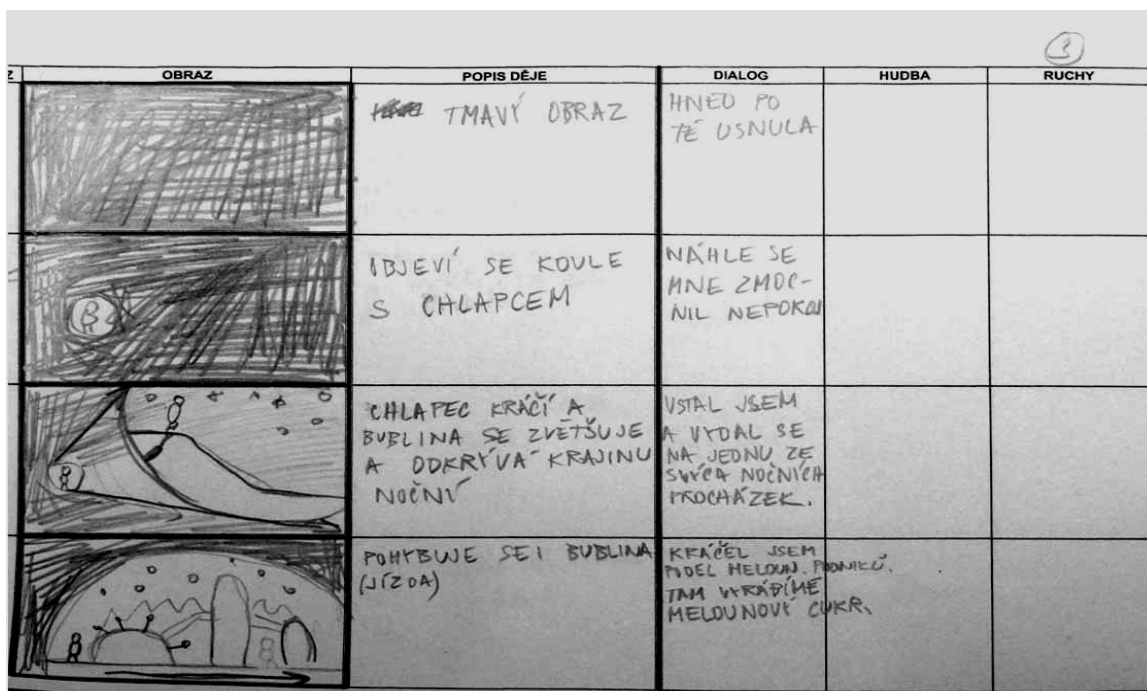 3
Z OBRAZ POPIS DĚJE DIALOG HUDBA RUCHY
TMAVÝ OBRAZ
HNED PO
TÉ USNULA
OBJEVÍ SE KOULE
S CHLAPCEM
NÁHLE SE
MNE ZMOC-
NIL NEPOKOJ
CHLAPEC KRÁČÍ A
BUBLINA SE ZVĚTŠUJE
A ODKRÝVÁ KRAJINU
NOČNÍ
VSTAL JSEM
A VYDAL SE
NA JEDNU ZE
SVÝCH NOČNÍCH
PROCHÁZEK.
POHYBUJE SE I BUBLINA
(JÍZDA)
KRÁČEL JSEM
PODÉL MELOUN. PODNIKŮ.
TAM VYRÁBÍME
MELOUNOVÝ CUKR.